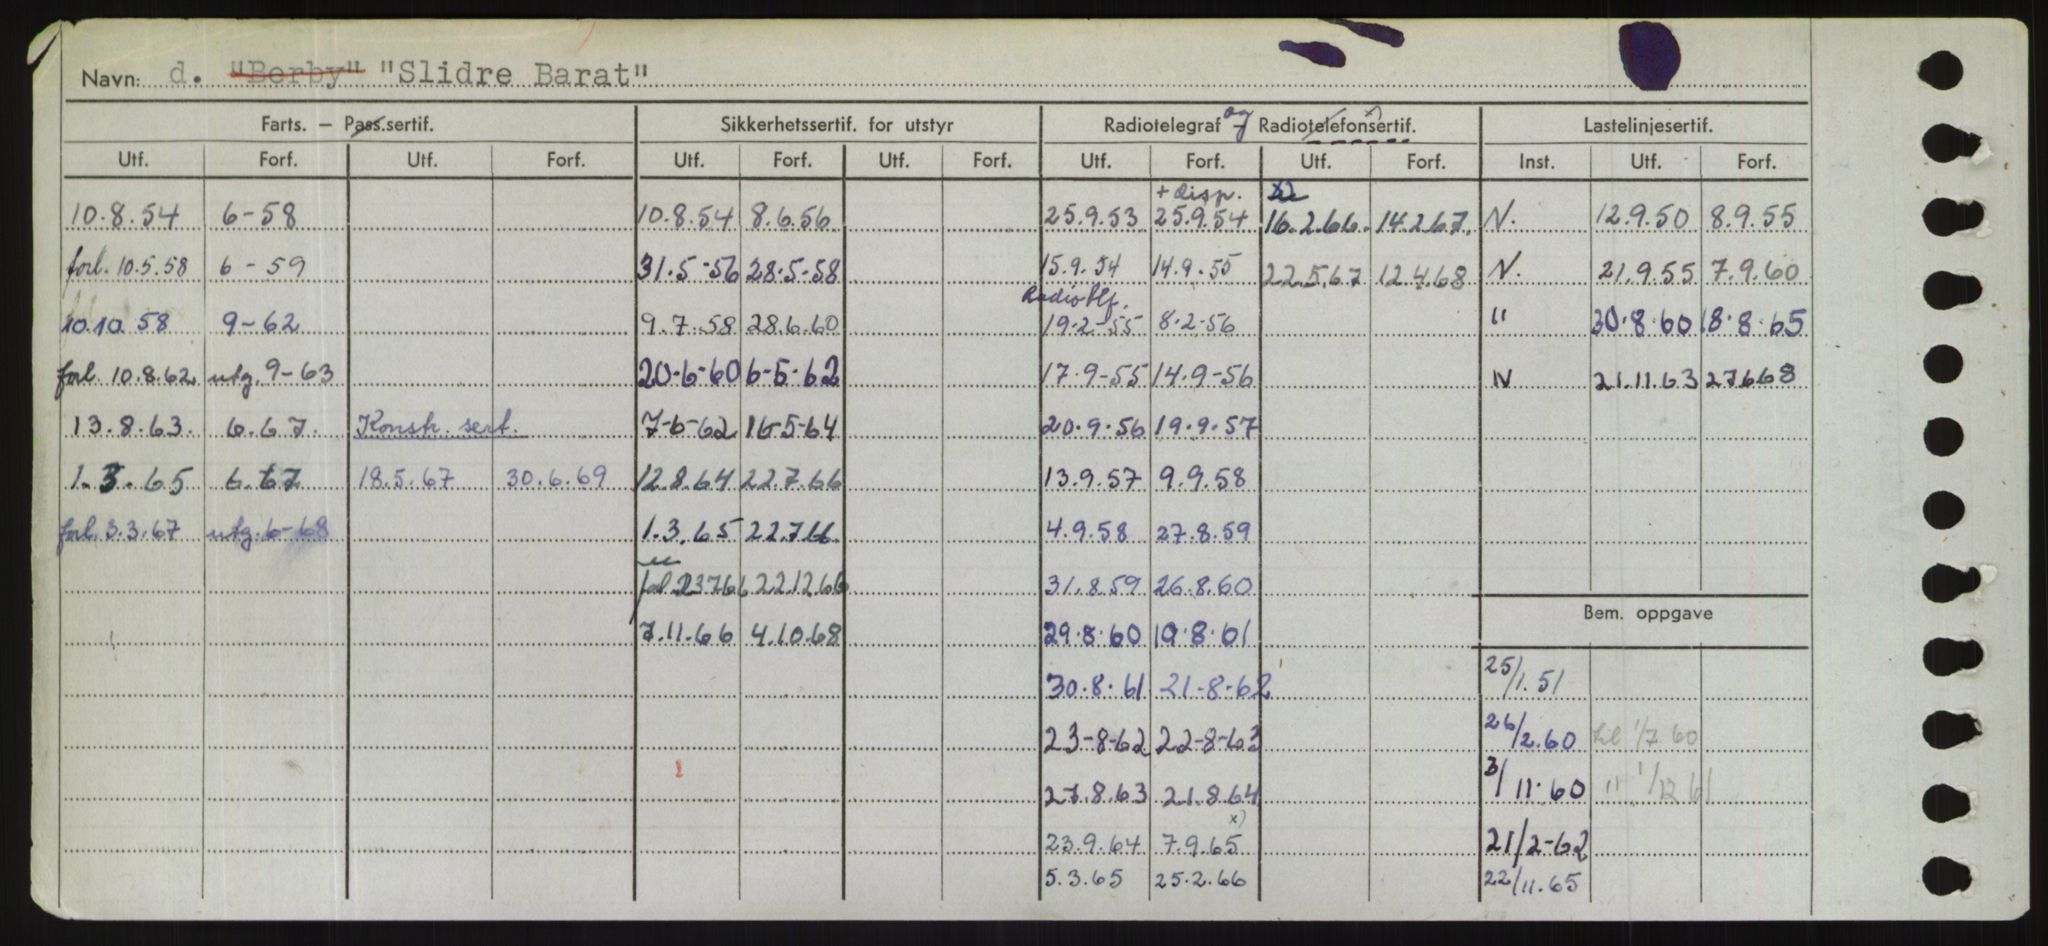 Navn: d. "Berby" "Slidre Barat"
Farts. – Pass.sertif. Sikkerhetssertif. for utstyr Radiotelegraf og Radiotelefonsertif. Lastelinjesertif.
Utf. Forf. Utf. Forf. Utf. Forf. Utf. Forf. Utf. Forf. Utf. Forf. Inst. Utf. Forf.
+ disp.
10.8.54 6-58 10.8.54 8.6.56 25.9.53 25.9.54 16.2.66. 14.2.67. N. 12.9.50 8.9.55
forl. 10.5.58 6-59 31.5-56 28.5-58 15.9.54 14.9.55 22.5.67 12.4.68 N. 21.9.55 7.9.60
Radiotlf.
10.10.58 9-62 9.7.58 28.6.60 19.2-55 8-2-56 " 30.8.60 18.8.65
forl. 10.8.62 utg. 9-63 20-6-60 6-5-62 17.9-55 14.9-56 N 21.11.63 27.6.68
13.8.63. 6.67. Konstr. sert. 7-6-62 16-5-64 20.9.56 19.9.57
1.3.65 6.67 18.5.67 30.6.69 12.8.64 22.7.66 13.9.57 9.9.58
forl. 3.3.67 utg. 6-68 1.3.65 22.7.66 4.9.58 27.8.59
forl 23766 22.12.66 31.8.59 26.8.60
Bem. oppgave
7.11.66 4.10.68 29.8.60 19.8.61
30.8.61 21-8-62 25/1.51
23-8-62 22-8-63 26/2.60 1/7 60
27.8.63 21.8.64 3/11.60 " 1/12 61
x)
23.9.64 7.9.65 21/2-62
5.3.65 25.2.66 22/11.65